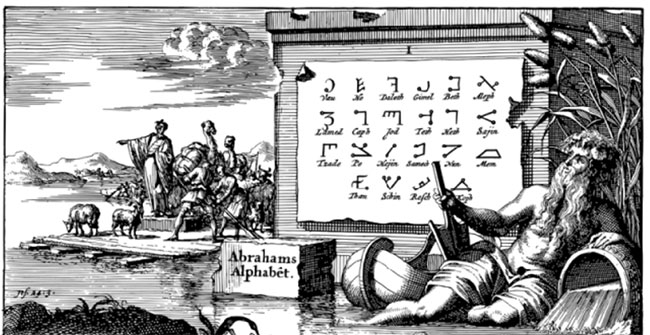 I
Vau He Daleth Gimel Beth Aleph
Lamed Caph Jod Teth Heth Sajin
Tzade Pe Hajin Samech Nun Mem
Thau Schin Resch
Abrahams
Alphabét.